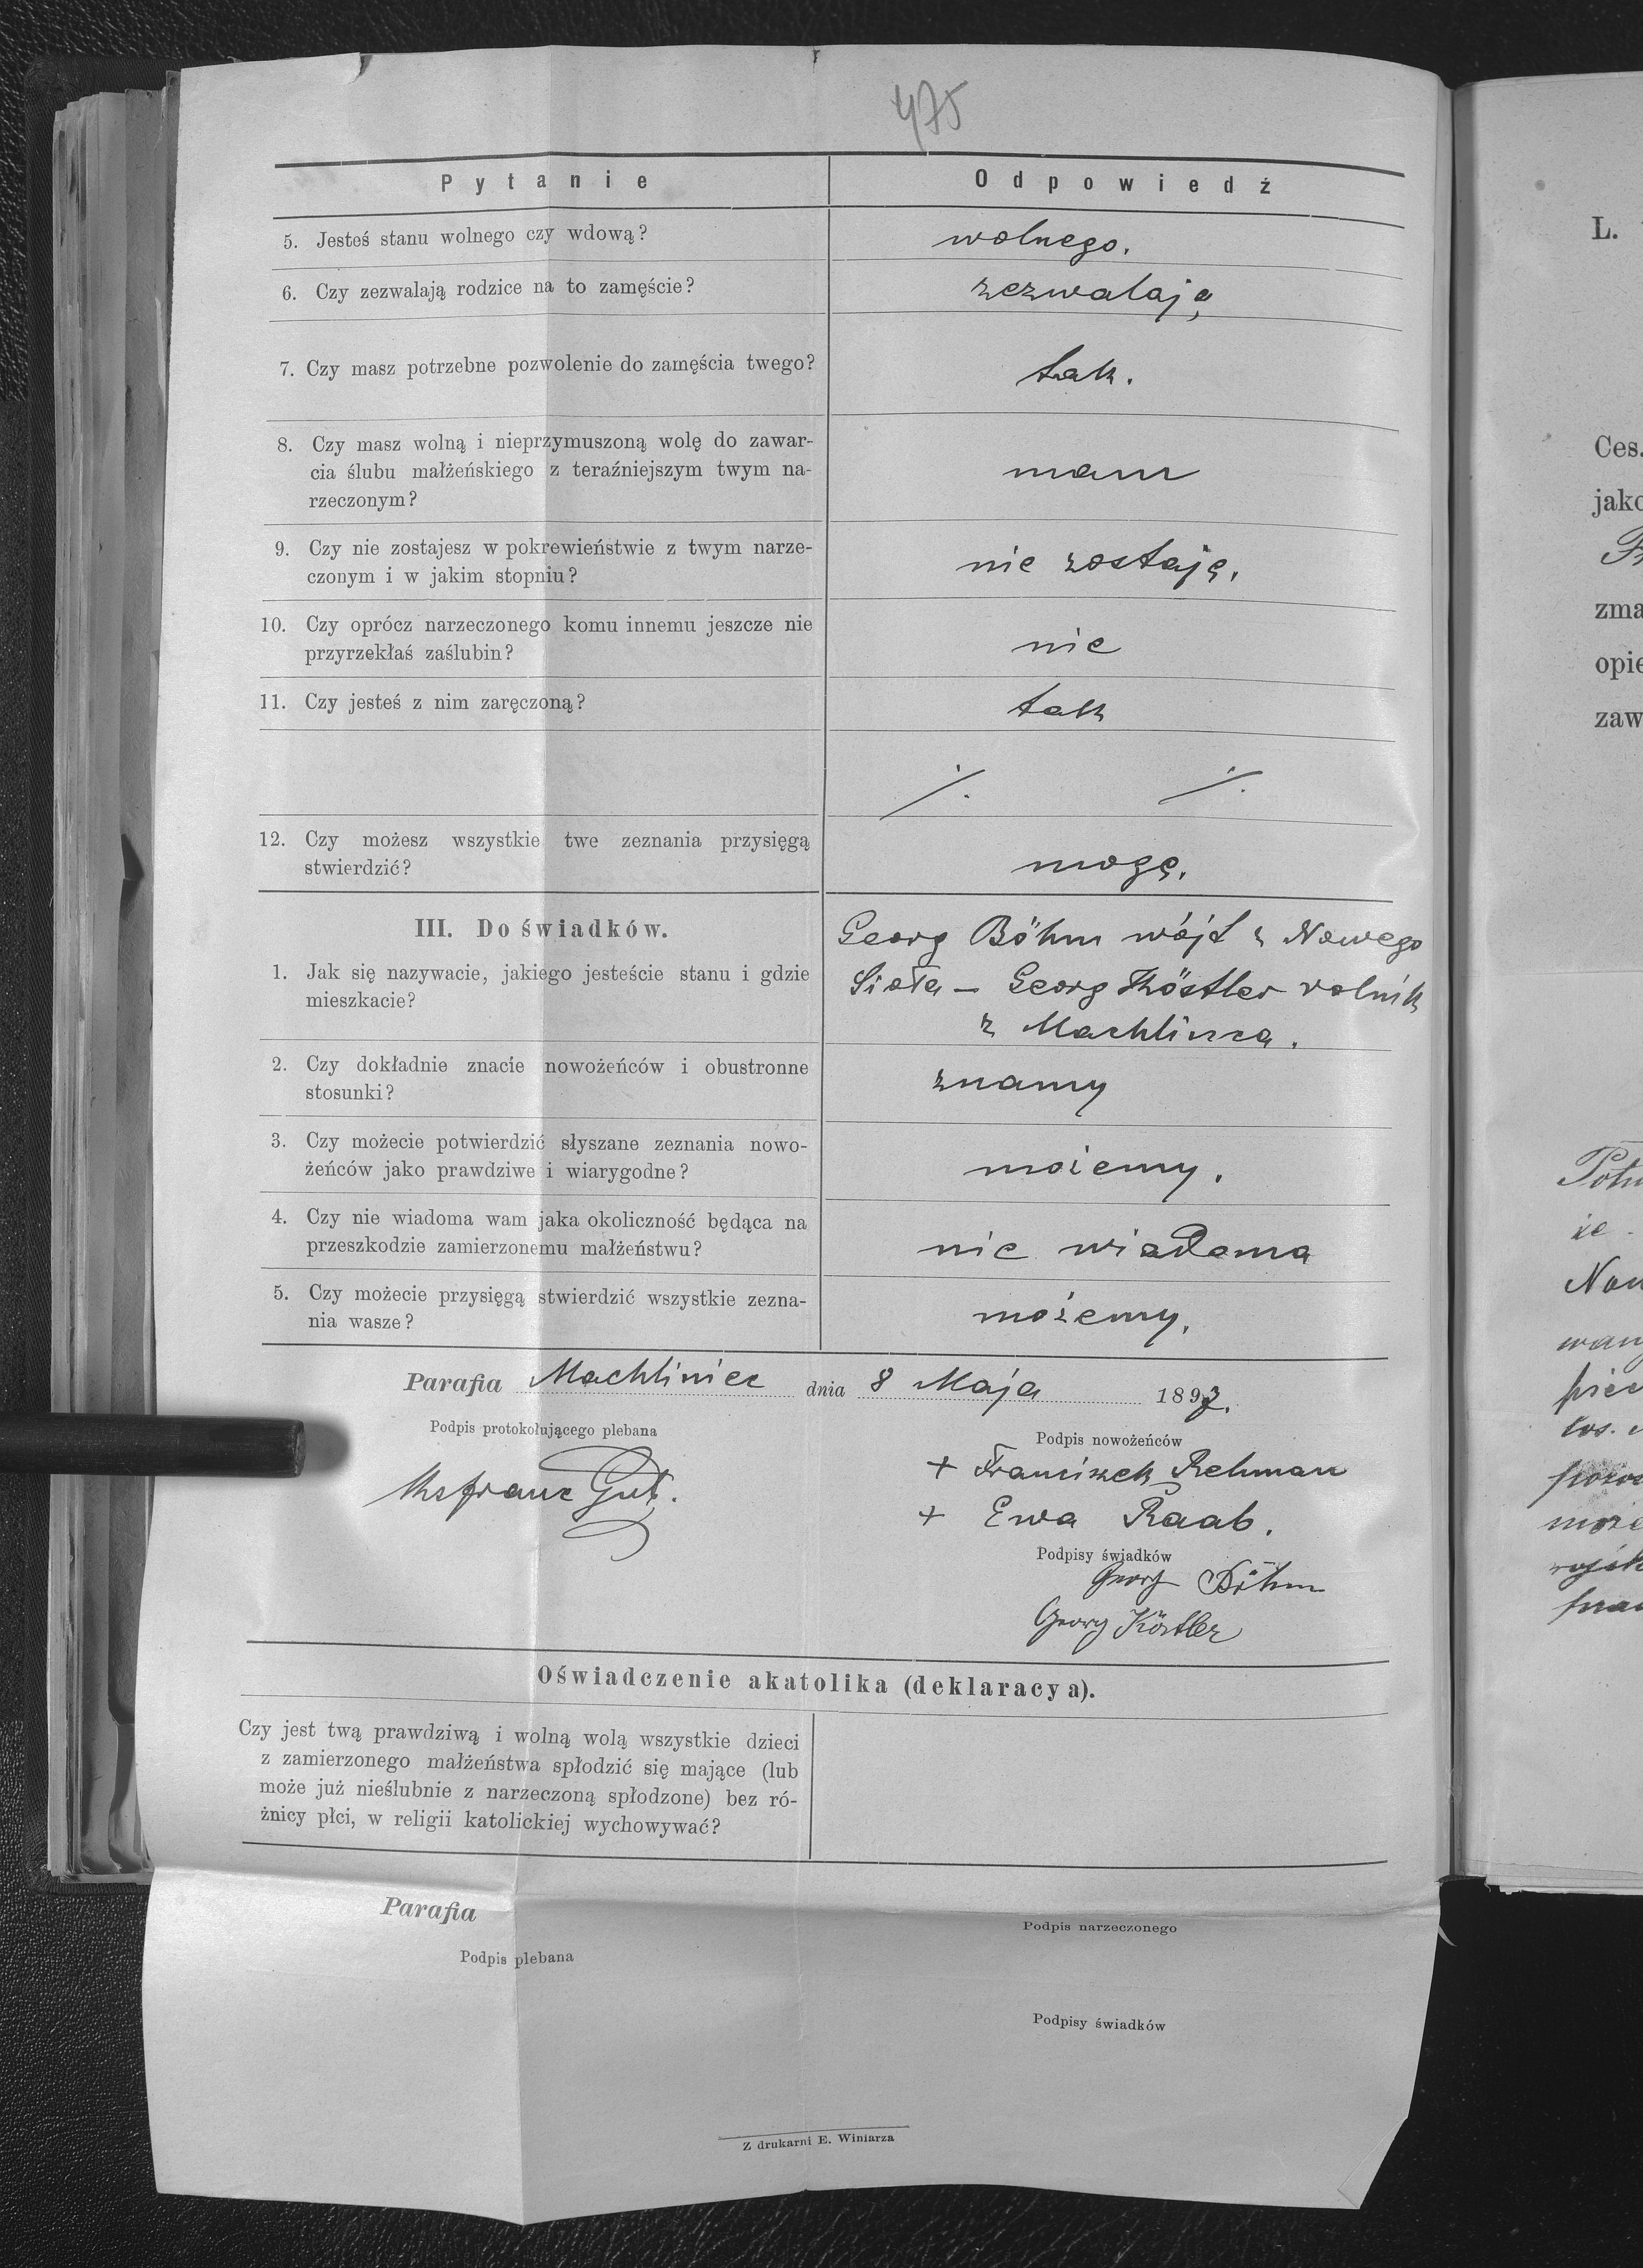 475
Pytanie
Odpowiedź
5. Jesteś stanu wolnego czy wdową?
wolnego.
6. Czy zezwalają rodzice na to zamęście?
zezwalają
7. Czy masz potrzebne pozwolenie do zamęścia twego?
tak.
8. Czy masz wolną i nieprzymuszoną wolę do zawar-
cia ślubu małżeńskiego z teraźniejszym twym na-
rzeczonym?
mam
9. Czy nie zostajesz w pokrewieństwie z twym narze-
czonym i w jakim stopniu?
nie zostaję.
10. Czy oprócz narzeczonego komu innemu jeszcze nie
przyrzekłaś zaślubin?
nie
11. Czy jesteś z nim zaręczoną?
tak
./. ./.
12. Czy możesz wszystkie twe zeznania przysięgą
stwierdzić?
mogę.
III. Do świadków.
1. Jak się nazywacie, jakiego jesteście stanu i gdzie
mieszkacie?
Georg Böhm wójt z Nowego
Sioła – Georg Köstler rolnik
z Machlińca.
2. Czy dokładnie znacie nowożeńców i obustronne
stosunki?
znamy
3. Czy możecie potwierdzić słyszane zeznania nowo-
żeńców jako prawdziwe i wiarygodne?
możemy.
4. Czy nie wiadoma wam jaka okoliczność będąca na
przeszkodzie zamierzonemu małżeństwu?
nie wiadoma
5. Czy możecie przysięgą stwierdzić wszystkie zezna-
nia wasze?
możemy.
Parafia Machliniec dnia 8 Maja 1893.
Podpis protokołującego plebana
Podpis nowożeńców
+ Franciszek Rehman
+ Ewa Raab.
Podpisy świadków
Georg Böhm
Georg Köstler
Oświadczenie akatolika (deklaracya).
Czy jest twą prawdziwą i wolną wolą wszystkie dzieci
z zamierzonego małżeństwa spłodzić się mające (lub
może już nieślubnie z narzeczoną spłodzone) bez ró-
żnicy płci, w religii katolickiej wychowywać?
Parafia
Podpis narzeczonego
Podpis plebana
Podpisy świadków
Z drukarni E. Winiarza
L.
Ces.
jako
zma
opie
zaw